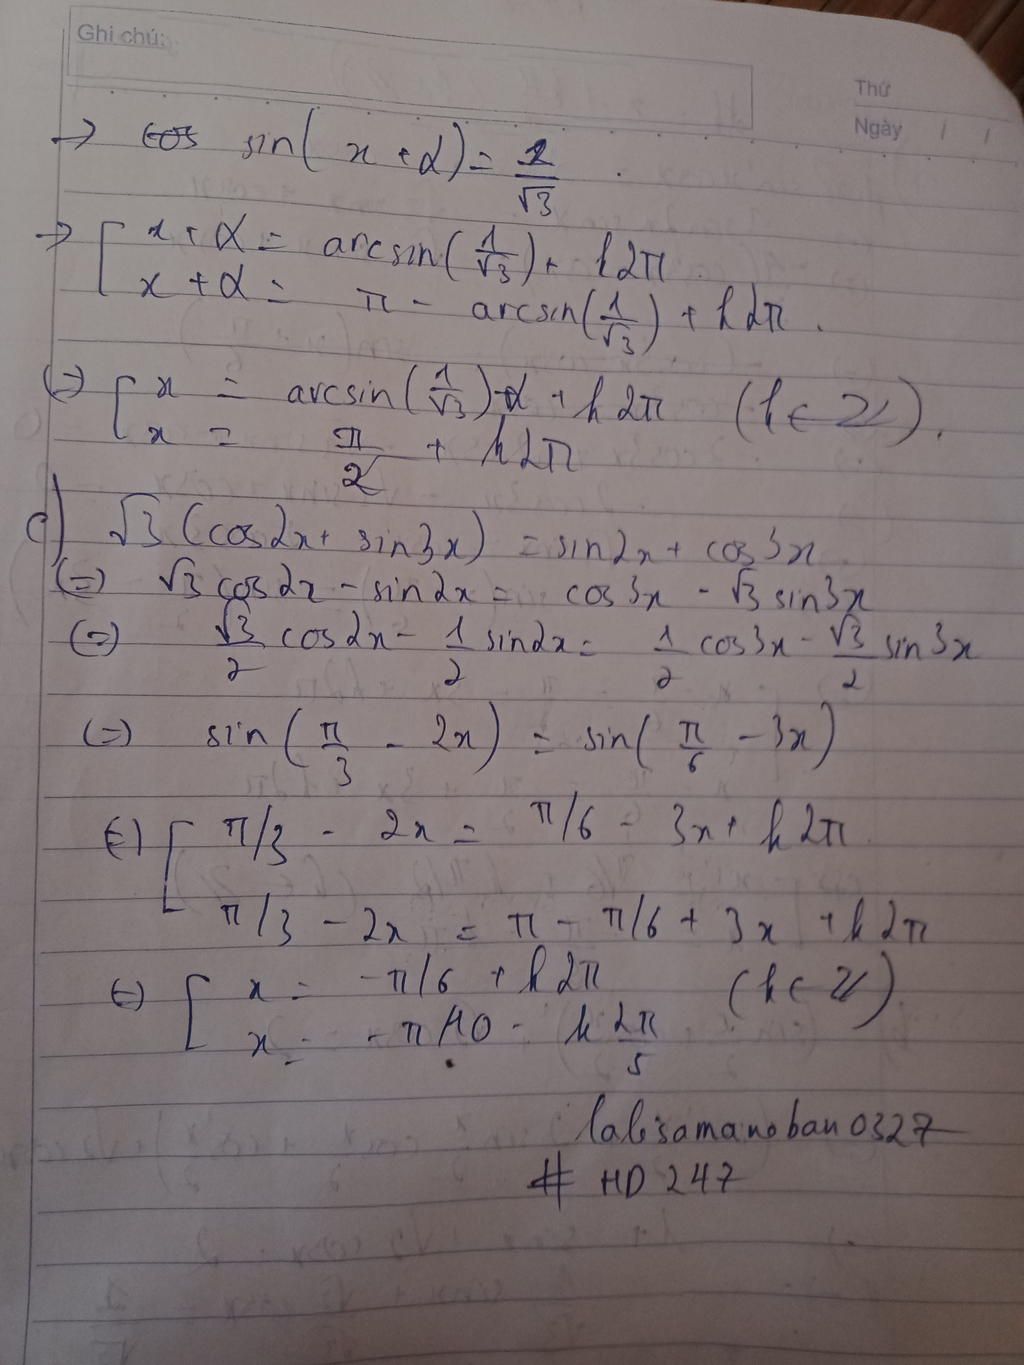 Ghi chú:
Thứ
Ngày / /
→ sin(x+α) = 1/√3 .
→ [ x+α = arcsin(1/√3) + k2π
x+α = π - arcsin(1/√3) + k2π .
(=) [ x = arcsin(1/√3) - α + k2π (k ∈ Z).
x = π/2 + k2π
c) √3(cos2x + sin3x) = sin2x + cos3x
(=) √3 cos2x - sin2x = cos3x - √3 sin3x
(=) √3/2 cos2x - 1/2 sin2x = 1/2 cos3x - √3/2 sin3x
(=) sin(π/3 - 2x) = sin(π/6 - 3x)
(=) [ π/3 - 2x = π/6 - 3x + k2π
π/3 - 2x = π - π/6 + 3x + k2π
(=) [ x = -π/6 + k2π (k ∈ Z)
x = -π/10 - k 2π/5
lalisamanoban0327
# HD247